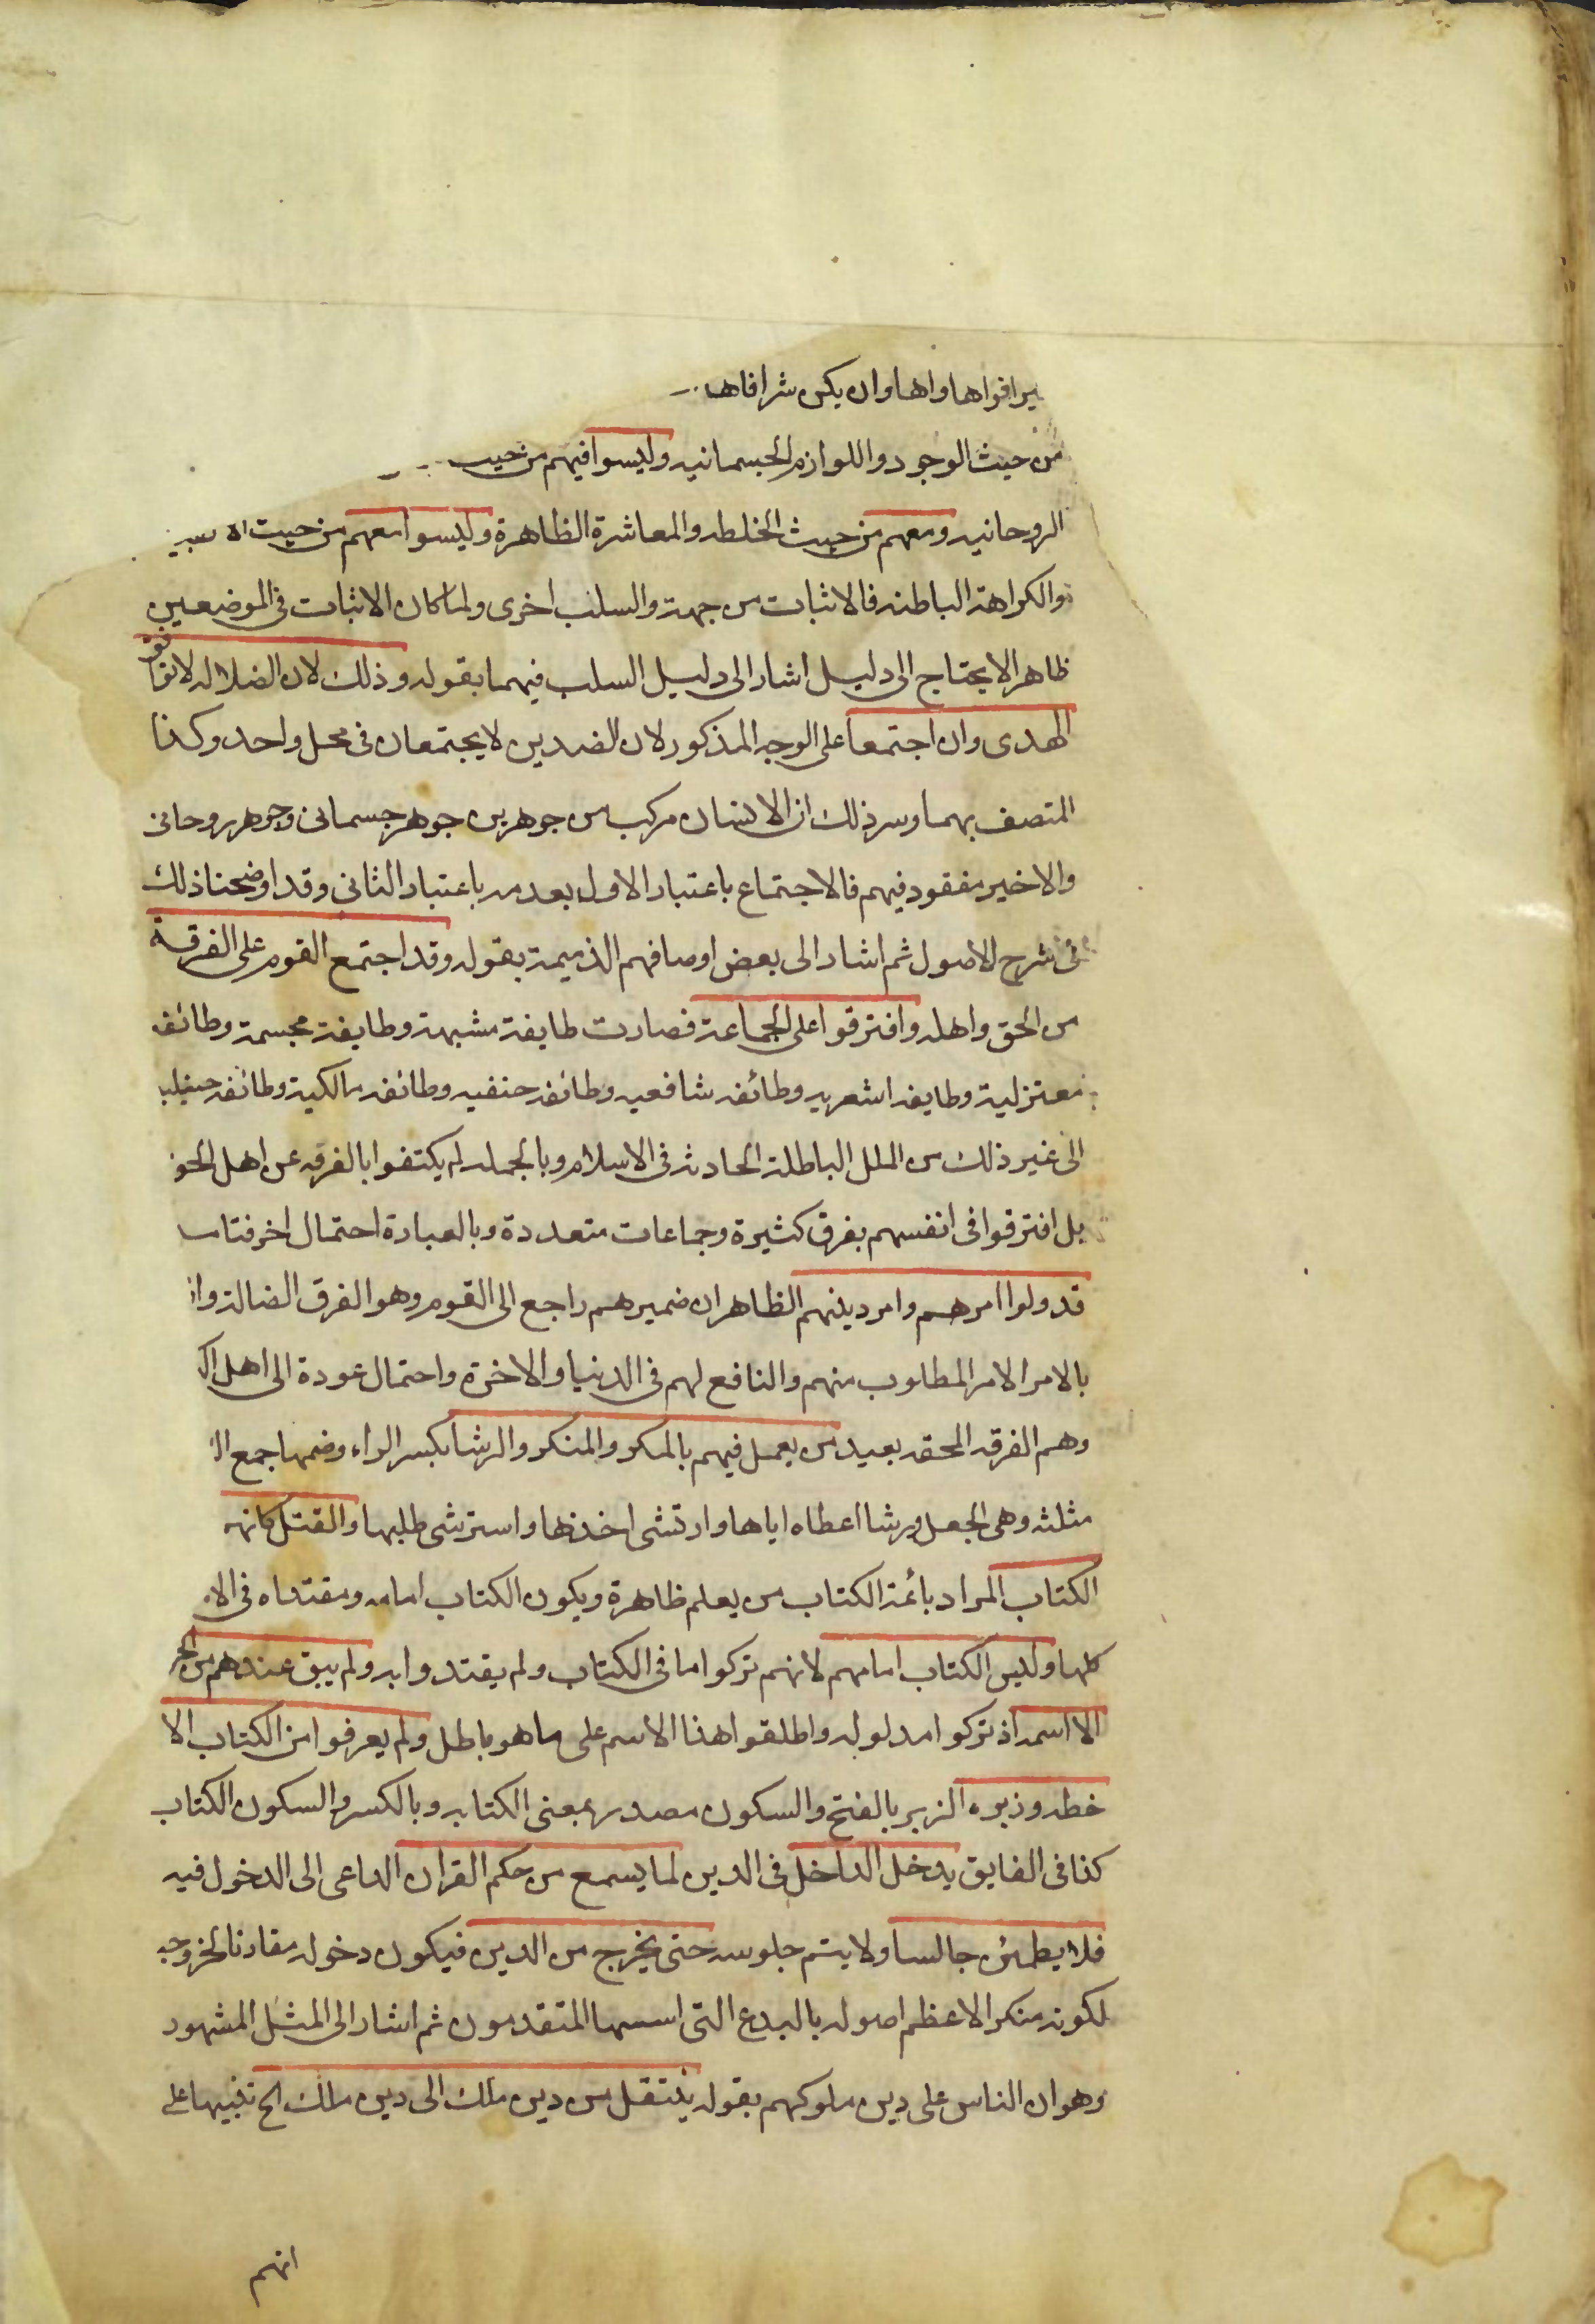 افواها واها وان يكن شرا فاها
من حيث الوجود واللوازم الجسمانيه وليسوا فيهم من حيث
الروحانيه ومعهم من حيث الخلطه والمعاشرة الظاهرة وليسوا معهم من حيث
والكراهة الباطنه فالاثبات من جهة والسلب اخرى ولما كان الاثبات فى الموضعين
ظاهرا لا يحتاج الى دليل اشار الى دليل السلب فيهما بقوله وذلك لان الضلاله لا توافق
الهدى وان اجتمعا على الوجه المذكور لان الضدين لا يجتمعان فى محل واحد وكذا
المتصف بهما وسر ذلك ان الانسان مركب من جوهرين جوهر جسمانى وجوهر روحانى
والاخير مفقود فيهم فالاجتماع باعتبار الاول بعدمه باعتبار الثانى وقد اوضحنا ذلك
فى شرح الاصول ثم اشار الى بعض اوصافهم الذميمة بقوله وقد اجتمع القوم على الفرقة
من الحق واهله وافترقوا على الجماعة فصارت طايفة مشبهة وطايفة مجسمة وطائفه
معتزلية وطايفه اشعريه وطائفه شافعيه وطائفه حنفيه وطائفه مالكية وطائفه حنبليه
الى غير ذلك من الملل الباطلة الحادثه فى الاسلام وبالجمله لم يكتفوا بالفرقه عن اهل الحق
بل افترقوا فى انفسهم بفرق كثيرة وجماعات متعددة وبالعبارة احتمال اخر فتامل
قد ولوا امرهم وامر دينهم الظاهر ان ضمير هم راجع الى القوم وهو الفرق الضالة
بالامر الامر المطلوب منهم والنافع لهم فى الدنيا والاخرة واحتمال عودة الى اهل
وهم الفرقه المحقه بعيد من يعمل فيهم بالمكر والمنكر والرشا بكسر الراء وضمها جمع
مثلثه وهى الجعل ورشا اعطاه اياها وارتشى اخذها واسترشى طلبها والقتل كانهم
الكتاب المراد بائمة الكتاب من يعلم ظاهرة ويكون الكتاب امامه ومقتداه فى
كلها وليس الكتاب امامهم لانهم تركوا ما فى الكتاب ولم يقتدوا به ولم يبق عندهم من الحق
الا اسمه اذ تركوا مدلوله واطلقوا هذا الاسم على ما هو باطل ولم يعرفوا من الكتاب الا
خطه وزبره الزبر بالفتح والسكون مصدر بمعنى الكتابه وبالكسر والسكون الكتاب
كذا فى الفايق يدخل الداخل فى الدين لما يسمع من حكم القران الداعى الى الدخول فيه
فلا يطمئن جالسا ولا يتم جلوسه حتى يخرج من الدين فيكون دخوله مقارنا لخروجه
لكونه منكرا لاعظم اصوله بالبدع التى اسسها المتقدمون ثم اشار الى المثل المشهور
وهو ان الناس على دين ملوكهم بقوله ينتقل من دين ملك الى دين ملك الخ تنبيها على
انهم